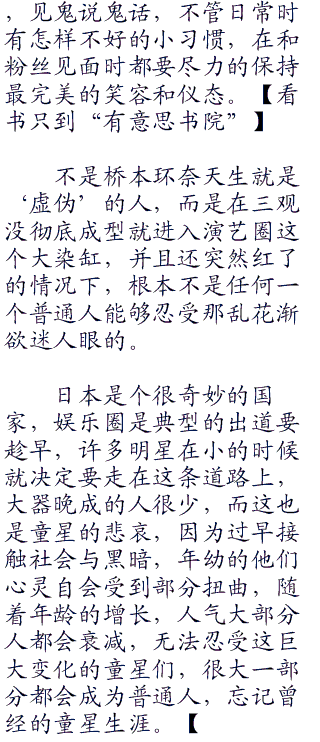 ，见鬼说鬼话，不管日常时
有怎样不好的小习惯，在和
粉丝见面时都要尽力的保持
最完美的笑容和仪态。【看
书只到“有意思书院”】
不是桥本环奈天生就是
‘虚伪’的人，而是在三观
没彻底成型就进入演艺圈这
个大染缸，并且还突然红了
的情况下，根本不是任何一
个普通人能够忍受那乱花渐
欲迷人眼的。
日本是个很奇妙的国
家，娱乐圈是典型的出道要
趁早，许多明星在小的时候
就决定要走在这条道路上，
大器晚成的人很少，而这也
是童星的悲哀，因为过早接
触社会与黑暗，年幼的他们
心灵自会受到部分扭曲，随
着年龄的增长，人气大部分
人都会衰减，无法忍受这巨
大变化的童星们，很大一部
分都会成为普通人，忘记曾
经的童星生涯。【